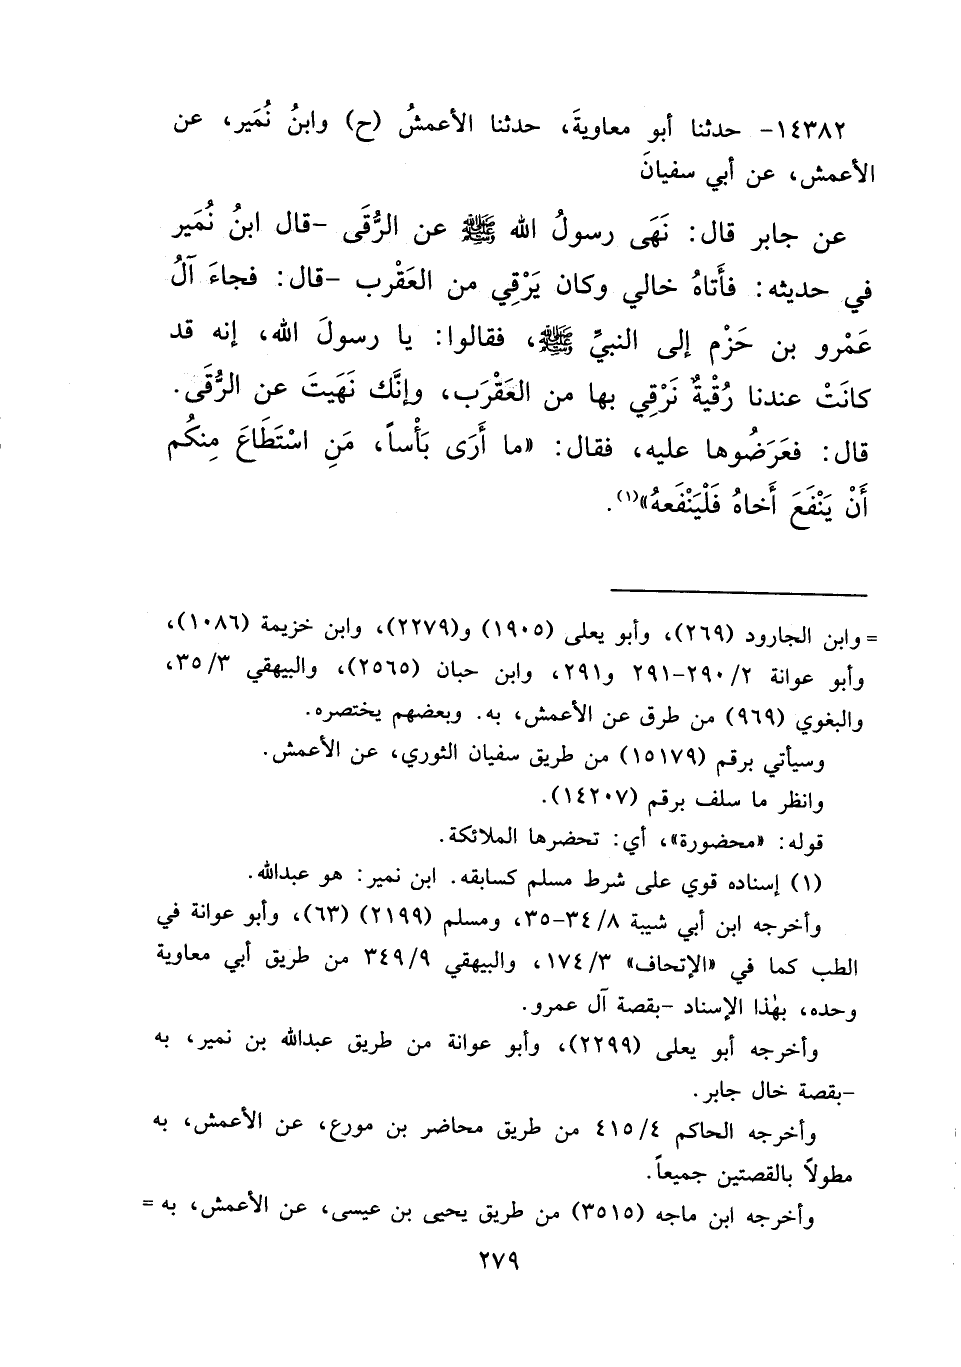 ١٤٣٨٢- حدثنا أبو معاويةَ، حدثنا الأعمشُ (ح) وابنُ نُمَير، عن
الأعمش، عن أبي سفيانَ
عن جابر قال: نَهَى رسولُ الله ﷺ عن الرُّقَى -قال ابنُ نُمَير
في حديثه: فأَتاهُ خالي وكان يَرْقِي من العَقْرب -قال: فجاءَ آلُ
عَمْرو بن حَزْم إلى النبيِّ ﷺ، فقالوا: يا رسولَ الله، إنه قد
كانَتْ عندنا رُقْيةٌ نَرْقِي بها من العَقْرَب، وإنَّك نَهَيتَ عن الرُّقَى.
قال: فعَرَضُوها عليه، فقال: «ما أَرَى بَأْساً، مَنِ اسْتَطَاعَ مِنكُم
أَنْ يَنْفَعَ أَخاهُ فَلْيَنْفَعهُ»(١).
= وابن الجارود (٢٦٩)، وأبو يعلى (١٩٠٥) و(٢٢٧٩)، وابن خزيمة (١٠٨٦)،
وأبو عوانة ٢/ ٢٩٠-٢٩١ و٢٩١، وابن حبان (٢٥٦٥)، والبيهقي ٣/ ٣٥،
والبغوي (٩٦٩) من طرق عن الأعمش، به. وبعضهم يختصره.
وسيأتي برقم (١٥١٧٩) من طريق سفيان الثوري، عن الأعمش.
وانظر ما سلف برقم (١٤٢٠٧).
قوله: «محضورة»، أي: تحضرها الملائكة.
(١) إسناده قوي على شرط مسلم كسابقه. ابن نمير: هو عبدالله.
وأخرجه ابن أبي شيبة ٨/ ٣٤-٣٥، ومسلم (٢١٩٩) (٦٣)، وأبو عوانة في
الطب كما في «الإتحاف» ٣/ ١٧٤، والبيهقي ٩/ ٣٤٩ من طريق أبي معاوية
وحده، بهٰذا الإسناد -بقصة آل عمرو.
وأخرجه أبو يعلى (٢٢٩٩)، وأبو عوانة من طريق عبدالله بن نمير، به
-بقصة خال جابر.
وأخرجه الحاكم ٤/ ٤١٥ من طريق محاضر بن مورع، عن الأعمش، به
مطولاً بالقصتين جميعاً.
وأخرجه ابن ماجه (٣٥١٥) من طريق يحيى بن عيسى، عن الأعمش، به =
٢٧٩